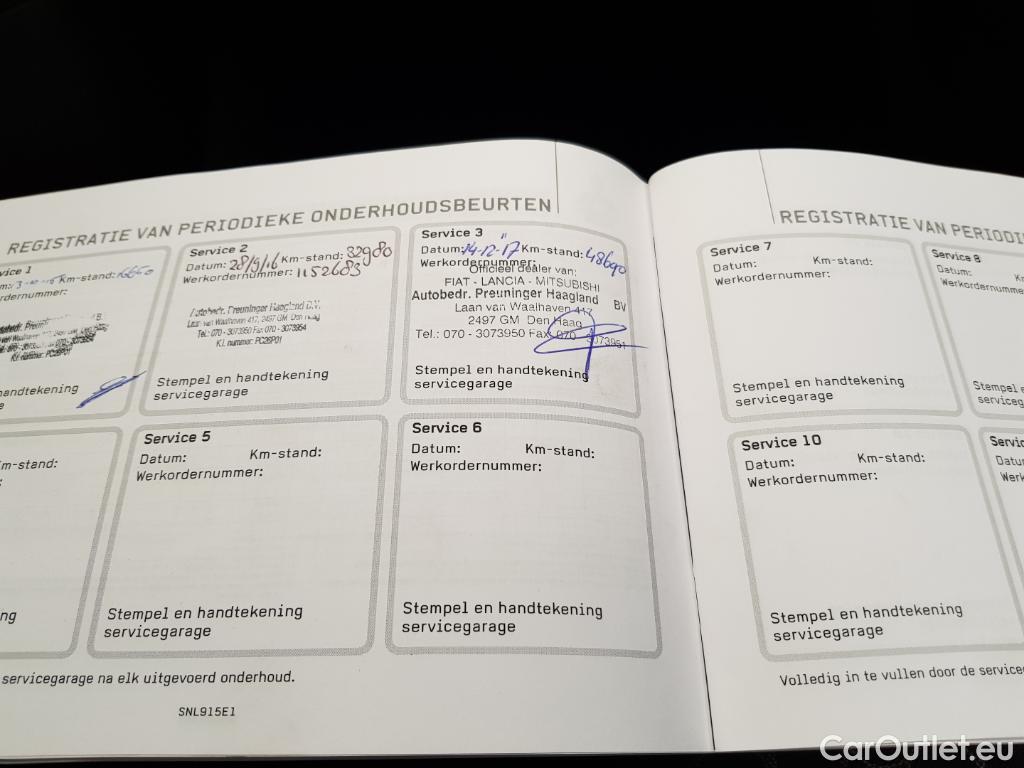 REGISTRATIE VAN PERIODIEKE ONDERHOUDSBEURTEN
Service 2
Datum: 28/9/16 Km-stand: 32980
Werkordernummer: 1152683
Autobedr. Preuninger Haagland B.V.
Laan van Waalhaven 417, 2497 GM Den Haag
Tel.: 070 - 3073950 Fax: 070 - 3073954
K.I. nummer: PC28P01
Stempel en handtekening
servicegarage
Service 3
Datum: 14-12-'17 Km-stand: 48690
Werkordernummer:
Officieel dealer van:
FIAT - LANCIA - MITSUBISHI
Autobedr. Preuninger Haagland BV
Laan van Waalhaven 417
2497 GM Den Haag
Tel.: 070 - 3073950 Fax: 070 - 3073951
Stempel en handtekening
servicegarage
vice 1
Km-stand:
rdernummer:
andtekening
m-stand:
ng
Service 5
Datum: Km-stand:
Werkordernummer:
Stempel en handtekening
servicegarage
Service 6
Datum: Km-stand:
Werkordernummer:
Stempel en handtekening
servicegarage
servicegarage na elk uitgevoerd onderhoud.
SNL915E1
REGISTRATIE VAN PERIODI
Service 7
Datum: Km-stand:
Werkordernummer:
Stempel en handtekening
servicegarage
Service 8
Datum:
Werkordernumme
Stempel e
servicega
Service 10
Datum: Km-stand:
Werkordernummer:
Stempel en handtekening
servicegarage
Servic
Datu
Werk
Volledig in te vullen door de service
CarOutlet.eu